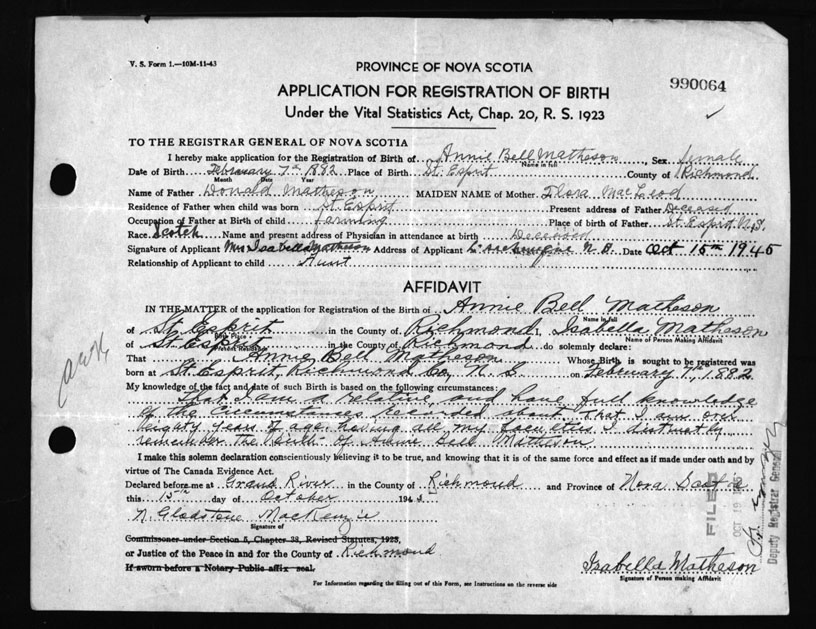 V. S. Form 1.—10M-11-43
PROVINCE OF NOVA SCOTIA
990064
APPLICATION FOR REGISTRATION OF BIRTH
Under the Vital Statistics Act, Chap. 20, R. S. 1923
TO THE REGISTRAR GENERAL OF NOVA SCOTIA
I hereby make application for the Registration of Birth of Annie Bell Matheson, Sex female
Name in full
Date of Birth February 7th 1882 Place of Birth St. Esprit County of Richmond
Month Date Year
Name of Father Donald Matheson MAIDEN NAME of Mother Flora MacLeod
Residence of Father when child was born St Esprit Present address of Father Deceased
Occupation of Father at Birth of child farming Place of birth of Father St. Esprit N.S.
Race Scotch Name and present address of Physician in attendance at birth Deceased
Signature of Applicant Mrs Isabella Matheson Address of Applicant Date Oct 15th 1945
Relationship of Applicant to child Aunt
AFFIDAVIT
IN THE MATTER of the application for Registration of the Birth of Annie Bell Matheson
Name in full
of St Esprit in the County of Richmond, Isabella Matheson
Birth Place Name of Person Making Affidavit
of St Esprit in the County of Richmond do solemnly declare:
Present Residence
That Annie Bell Matheson Whose Birth is sought to be registered was
born at St. Esprit, Richmond Co, N. S. on February 7th, 1882
My knowledge of the fact and date of such Birth is based on the following circumstances:
That I am a relative, and have full knowledge
of the circumstances recorded about that I am over
eighty years of age having all my faculties I distinctly
remember the birth of Annie Bell Matheson
I make this solemn declaration conscientiously believing it to be true, and knowing that it is of the same force and effect as if made under oath and by
virtue of The Canada Evidence Act.
Declared before me at Grand River in the County of Richmond and Province of Nova Scotia
this 15th day of October 1945
N. Gladstone MacKenzie
Signature of
Commissioner under Section 5, Chapter 38, Revised Statutes, 1923,
or Justice of the Peace in and for the County of Richmond
If sworn before a Notary Public affix seal.
Isabella Matheson
Signature of Person making Affidavit
For Information regarding the filling out of this Form, see Instructions on the reverse side
FILED
OCT 19 1945
Deputy Registrar General